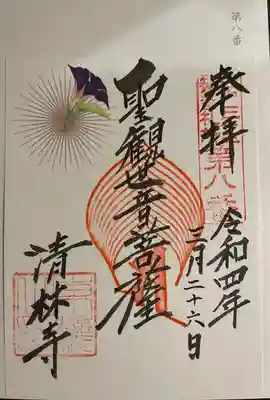 第八番
奉拝
第八番
令和四年
三月二十六日
聖観世音菩薩
清林寺